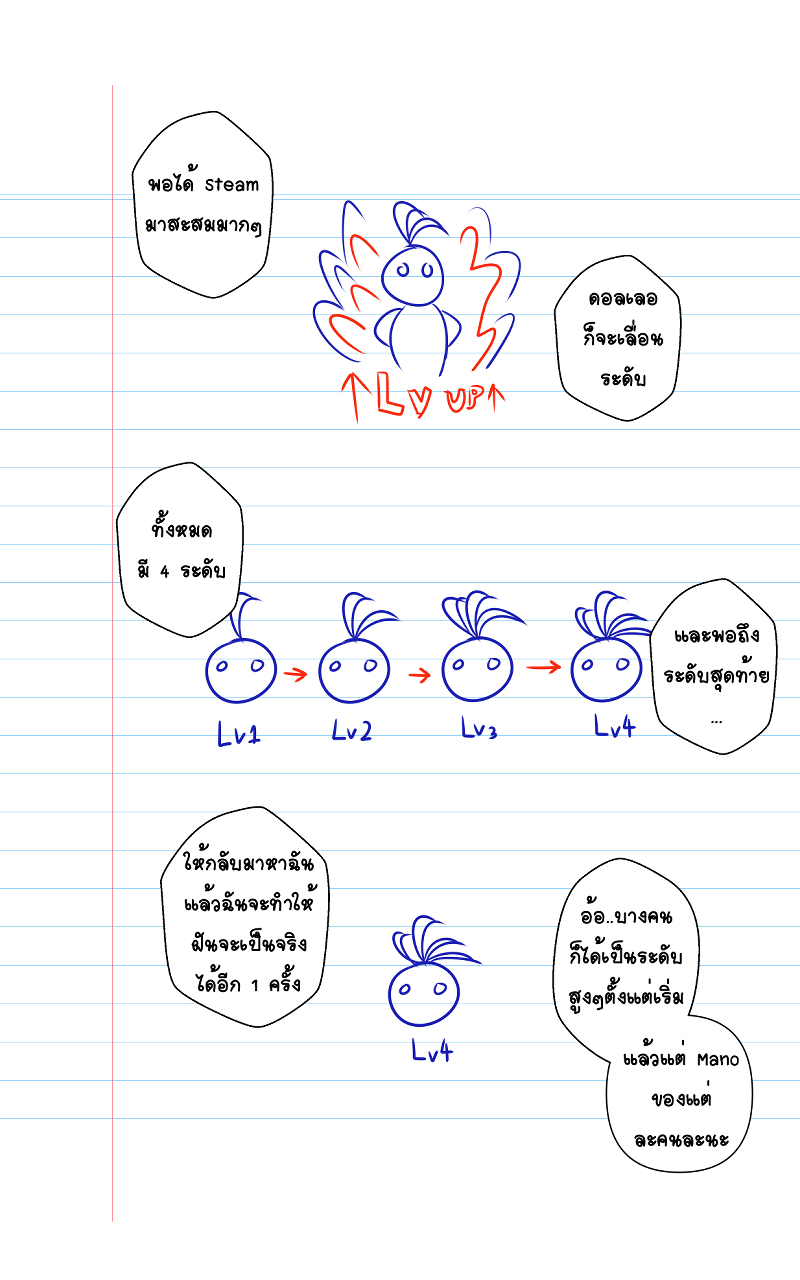 พอได้ Steam
มาสะสมมากๆ
ดอลเลอ
ก็จะเลื่อน
ระดับ
↑Lv UP↑
ทั้งหมด
มี 4 ระดับ
และพอถึง
ระดับสุดท้าย
...
Lv1
Lv2
Lv3
Lv4
ให้กลับมาหาฉัน
แล้วฉันจะทำให้
ฝันจะเป็นจริง
ได้อีก 1 ครั้ง
อ้อ..บางคน
ก็ได้เป็นระดับ
สูงๆตั้งแต่เริ่ม
Lv4
แล้วแต่ Mano
ของแต่
ละคนละนะ